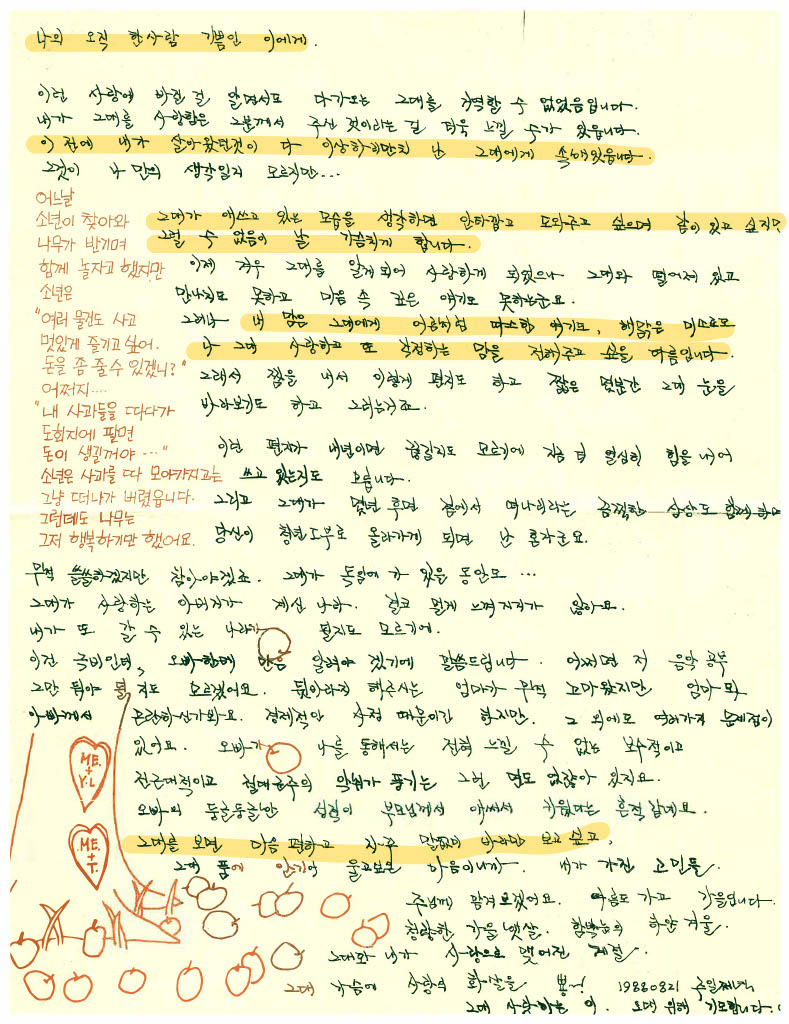 나의 오직 한사람 기쁨인 이에게.
이런 사랑에 빠질 걸 알면서도 다가오는 그대를 거역할 수 없었음입니다.
내가 그대를 사랑함은 그분께서 주신 것이라는 걸 더욱 느낄 수가 있습니다.
이 전에 내가 살아왔던것이 다 이상하리만치 난 그대에게 속해있읍니다.
그것이 나 만의 생각일지 모르지만...
그대가 애쓰고 있는 모습을 생각하면 안타깝고 도와주고 싶으며 같이 있고 싶지만
그럴 수 없음이 날 가슴치게 합니다.
이제 겨우 그대를 알게 되어 사랑하게 되었으나 그대와 떨어져 있고
만나지도 못하고 마음 속 깊은 얘기도 못하는군요.
그러나 내 맘은 그대에게 여름처럼 따스한 얘기로, 해맑은 미소로도
나 그대 사랑하고 또 걱정하는 맘을 전해주고 싶을 따름입니다.
그래서 짬을 내서 이렇게 편지도 하고 짧은 몇분간 그대 눈을
바라보기도 하고 그러는거죠.
이런 편지가 내년이면 끊길지도 모르기에 지금 더 열심히 힘을 내어
쓰고 있는지도 모릅니다.
그리고 그대가 몇년 후면 집에서 떠나리라는 끔찍한 상상도 함께 하며
당신이 청년도부로 올라가게 되면 난 혼자군요.
어느날
소년이 찾아와
나무가 반기며
함께 놀자고 했지만
소년은
"여러 물건도 사고
멋있게 즐기고 싶어.
돈을 좀 줄 수 있겠니?"
어쩌지....
"내 사과들을 따다가
도회지에 팔면
돈이 생길꺼야 ..."
소년은 사과를 따 모아가지고는
그냥 떠나가 버렸읍니다.
그런데도 나무는
그저 행복하기만 했어요.
무척 쓸쓸하겠지만 참아야겠죠. 그대가 독일에 가 있을 동안도 ...
그대가 사랑하는 아버지가 계신 나라. 결코 멀게 느껴지지가 않아요.
내가 또 갈 수 있는 나라가 될지도 모르기에.
이건 극비인데, 오빠한테 만은 알려야 겠기에 말씀드립니다. 어쩌면 저 음악 공부
그만 둬야 될 지도 모르겠어요. 뒷바라지 해주시는 엄마가 무척 고마왔지만 엄마 꽈
아빠께서 곤란하신가봐요. 경제적인 사정 때문이긴 하지만. 그 외에도 여러가지 문제점이
있어요. 오빠가 나를 통해서는 전혀 느낄 수 없는 보수적이고
전근대적이고 절대군주의 악취가 풍기는 그런 면도 없잖아 있지요.
오빠의 둥글둥글한 성격이 부모님께서 애써서 키웠다는 흔적 같네요.
그대를 보면 마음 편하고 자꾸 말없이 바라만 보고 싶고,
그대 품에 안기어 울고싶은 마음이니까. 내가 가진 고민들.
주님께 맡겨보겠어요. 여름도 가고 가을입니다.
청량한 가을 햇살. 함박눈의 하얀 겨울
그대와 내가 사랑으로 맺어진 계절.
그대 가슴에 사랑의 화살을 뿅~! 19880821 주일저녁
그대 사랑하는 이. 그대 위해 기도합니다.
M.E.
+
Y.L
M.E.
+
T.